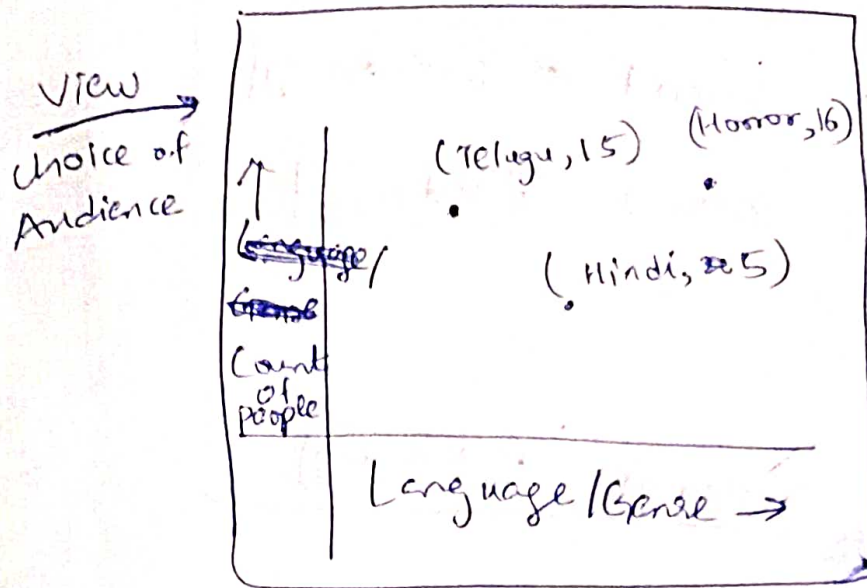 View
choice of
Audience
(Telugu, 15)
(Horror, 16)
(Hindi, 5)
Count
of
people
Language/Genre →